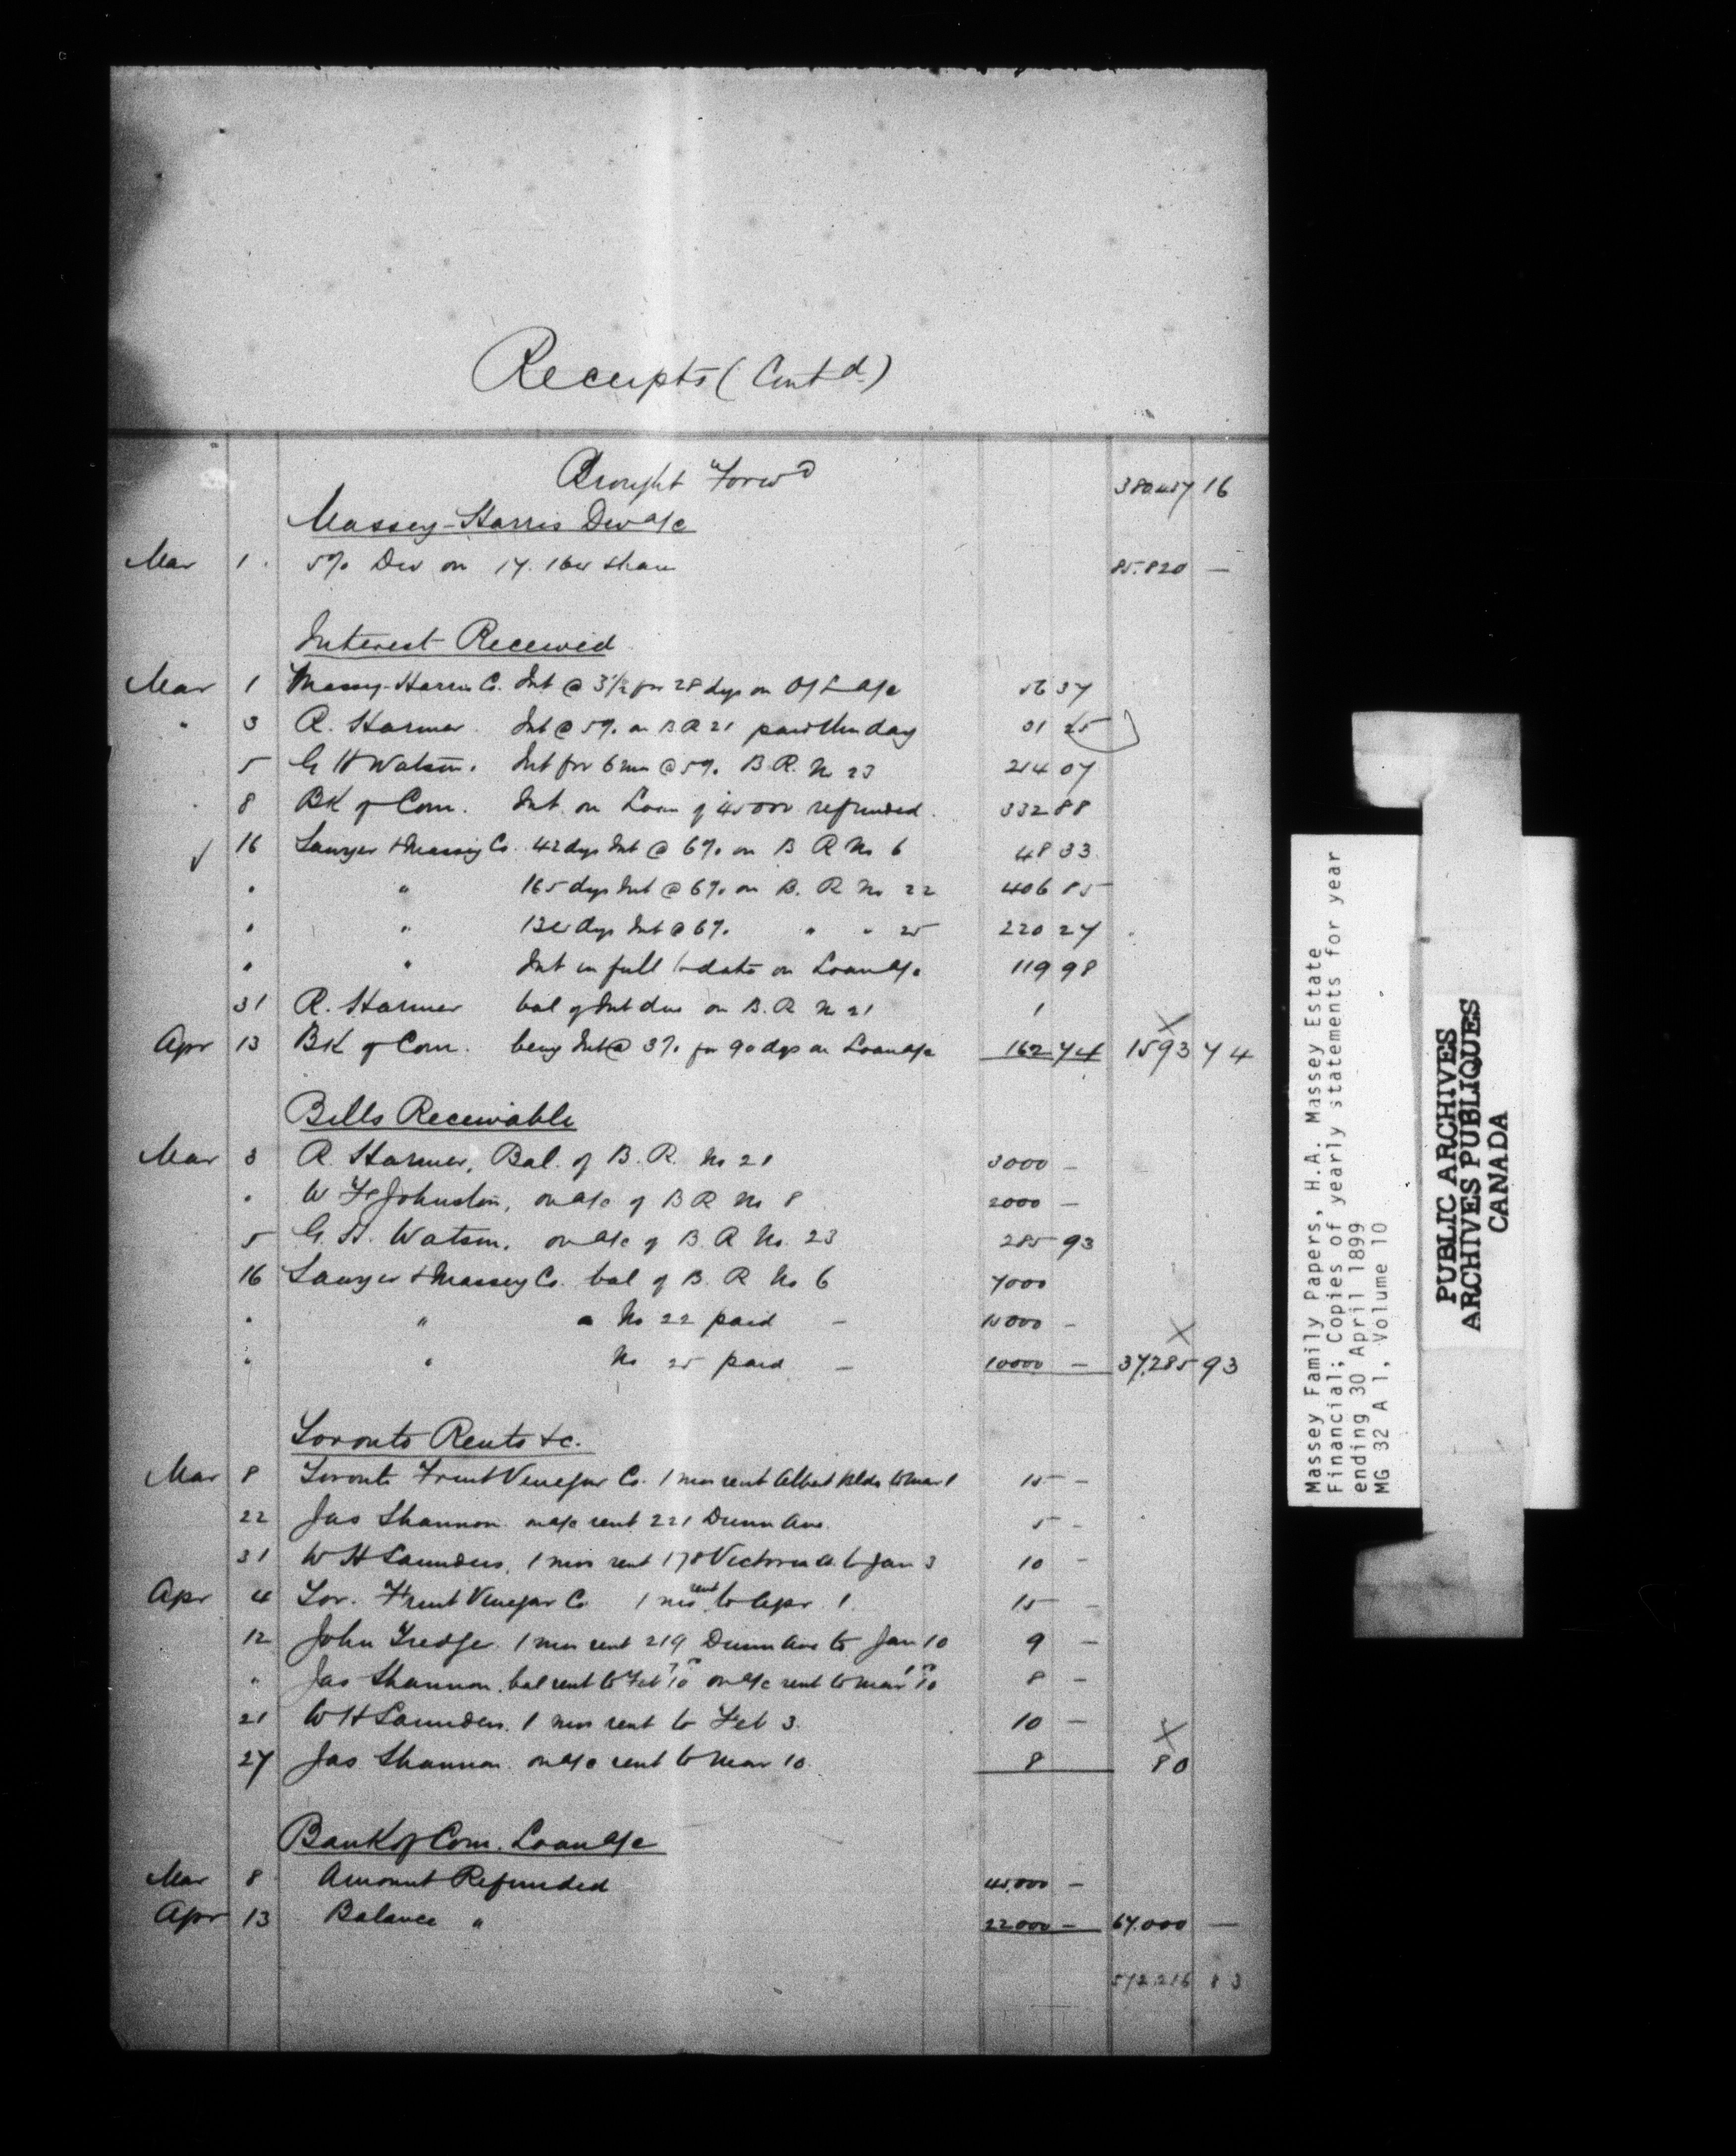 Receipts (Contd.)
Brought Forwd 380437 16
Massey-Harris Div a/c
Mar 1 5% Div on 17.164 shares 85.820 —
Interest Received
Mar 1 Massey-Harris Co. Int @ 3½ for 28 dys on O/L a/c 56 37
" 3 R. Harmer. Int @ 5% on B R 21 paid this day 31 25
5 G H Watson. Int for 6 mos @ 5% B.R. No 23 214 07
8 BK of Com. Int. on Loan of 45000 refunded. 332 88
✓ 16 Sawyer & Massey Co. 42 dys Int @ 6% on B R No 6 48 33
" " 165 dys Int @ 6% on B. R No 22 406 85
" " 134 dys Int @ 6% " " 25 220 27
" " Int in full to date on Loan a/c 119 98
31 R. Harmer bal of Int due on B.R No 21 1
Apr 13 BK of Com. being Int @ 3% for 90 dys on Loan a/c 162 74 1593 74
Bills Receivable
Mar 3 R. Harmer, Bal. of B.R. No 21 3000 —
" W F Johnston, on a/c of B R No 8 2000 —
5 G. H. Watson, on a/c of B. R No. 23 285 93
16 Sawyer & Massey Co. bal of B. R No 6 7000
" " " No 22 paid — 15000 —
" " No 25 paid — 10000 — 37,285 93
Toronto Rents &c.
Mar 8 Toronto Fruit Vinegar Co. 1 mos rent Albert Bldg to Mar 1 15 —
22 Jas Shannon on a/c rent 221 Dunn Ave. 5 -
31 W H Saunders, 1 mos rent 178 Victoria to Jan 3 10 -
Apr 4 Tor. Fruit Vinegar Co 1 mos rent to Apr. 1. 15 —
12 John Tredger. 1 mos rent 219 Dunn Ave to Jan 10 9 —
" Jas Shannon. bal rent to Feb 10 on a/c rent to Mar 10 8 —
21 W H Saunders. 1 mos rent to Feb 3. 10 —
27 Jas Shannon. on a/c rent to Mar 10. 8 80
Bank of Com. Loan a/c
Mar 8 Amount Refunded 45,000 —
Apr 13 Balance " 22000 — 67.000 —
572.216 83
Massey Family Papers, H.A. Massey Estate
Financial; Copies of yearly statements for year
ending 30 April 1899
MG 32 A 1, Volume 10
PUBLIC ARCHIVES
ARCHIVES PUBLIQUES
CANADA